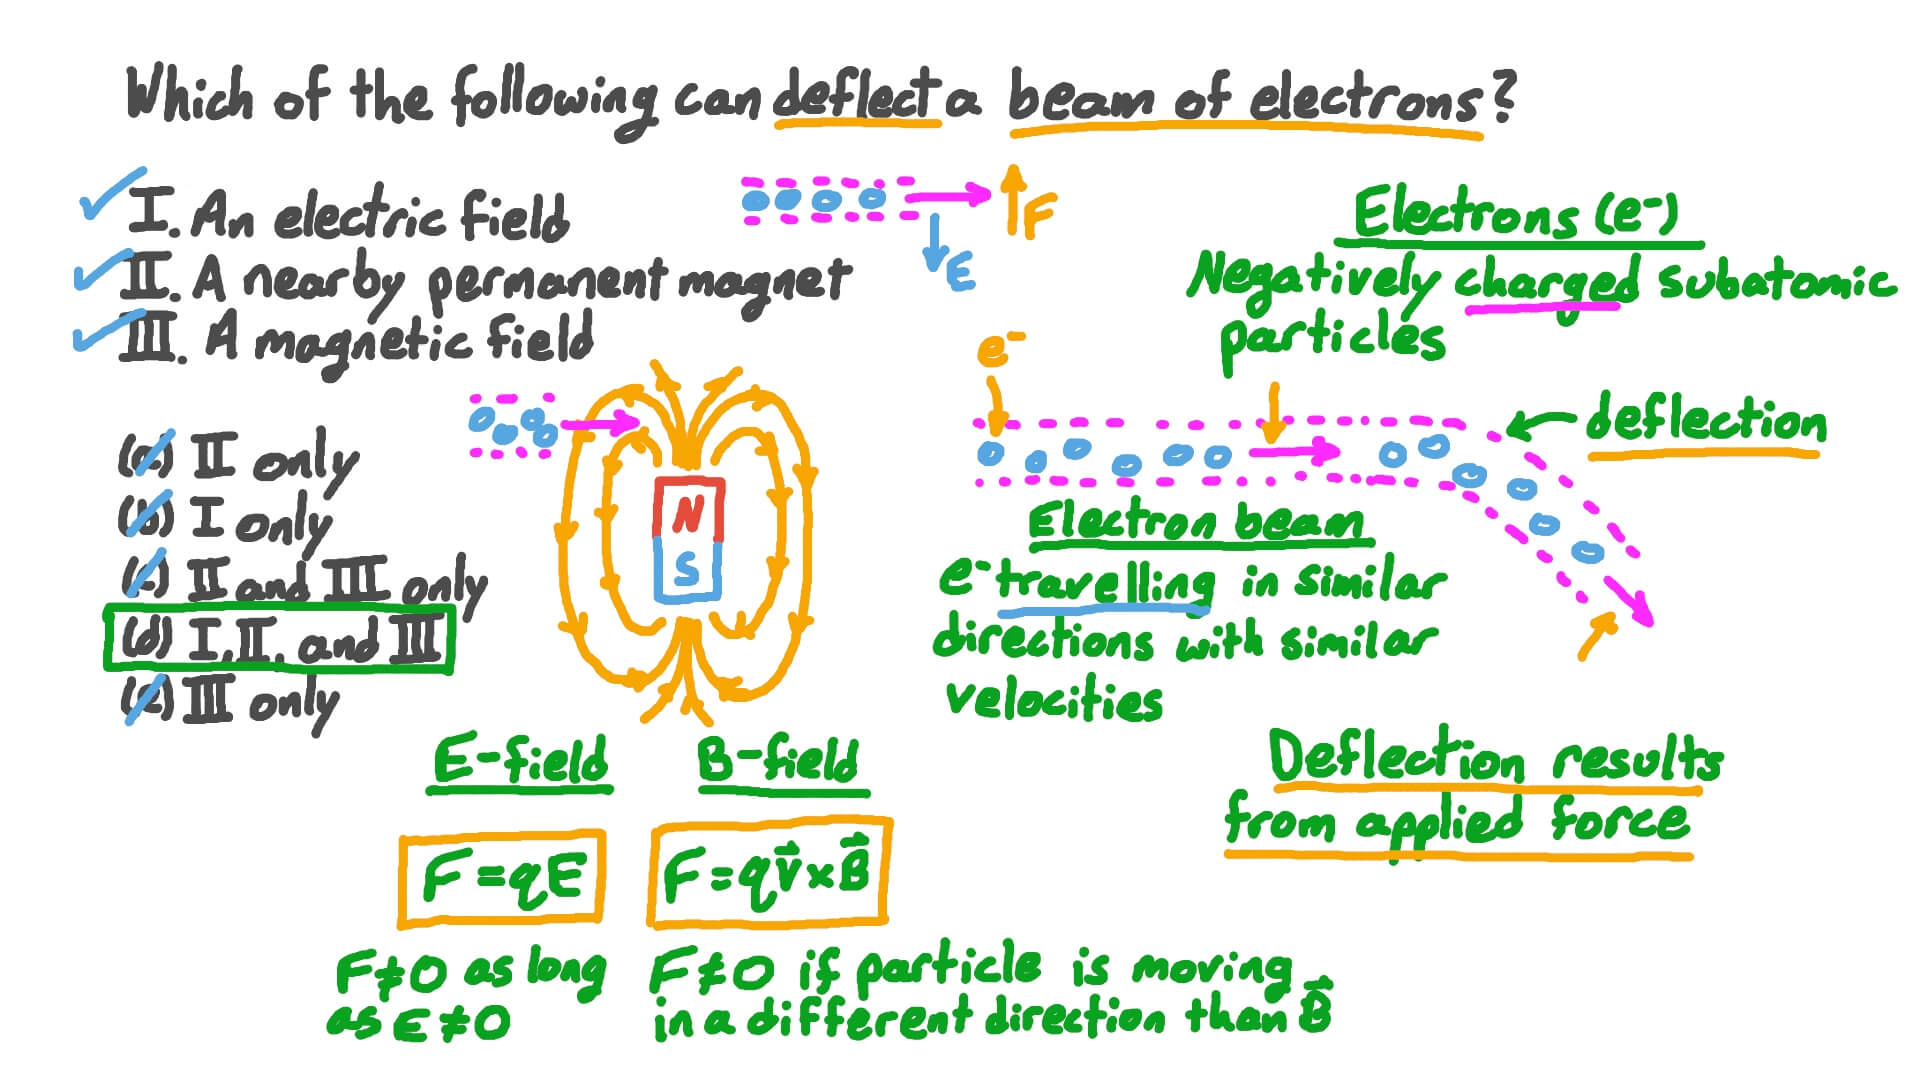 Which of the following can deflect a beam of electrons?
I. An electric field
II. A nearby permanent magnet
III. A magnetic field
F
E
Electrons (e-)
Negatively charged subatomic
particles
e-
deflection
(a) II only
(b) I only
(c) II and III only
(d) I, II, and III
(e) III only
N
S
Electron beam
e- travelling in similar
directions with similar
velocities
E-field
F=qE
F≠0 as long
as E≠0
B-field
F=qv⃗×B⃗
F≠0 if particle is moving
in a different direction than B⃗
Deflection results
from applied force